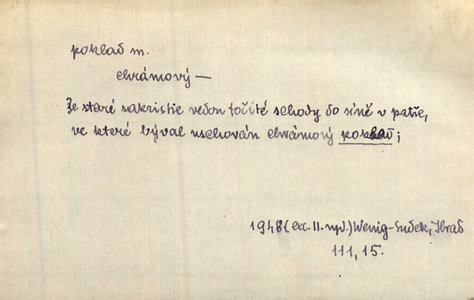 poklad m.
chrámový —
Ze staré sakristie vedou točité schody do síně v patře,
ve které býval uschován chrámový poklad;
1948 (exc. II. vyd.) Wenig-Sudek, Hrad
111, 15.